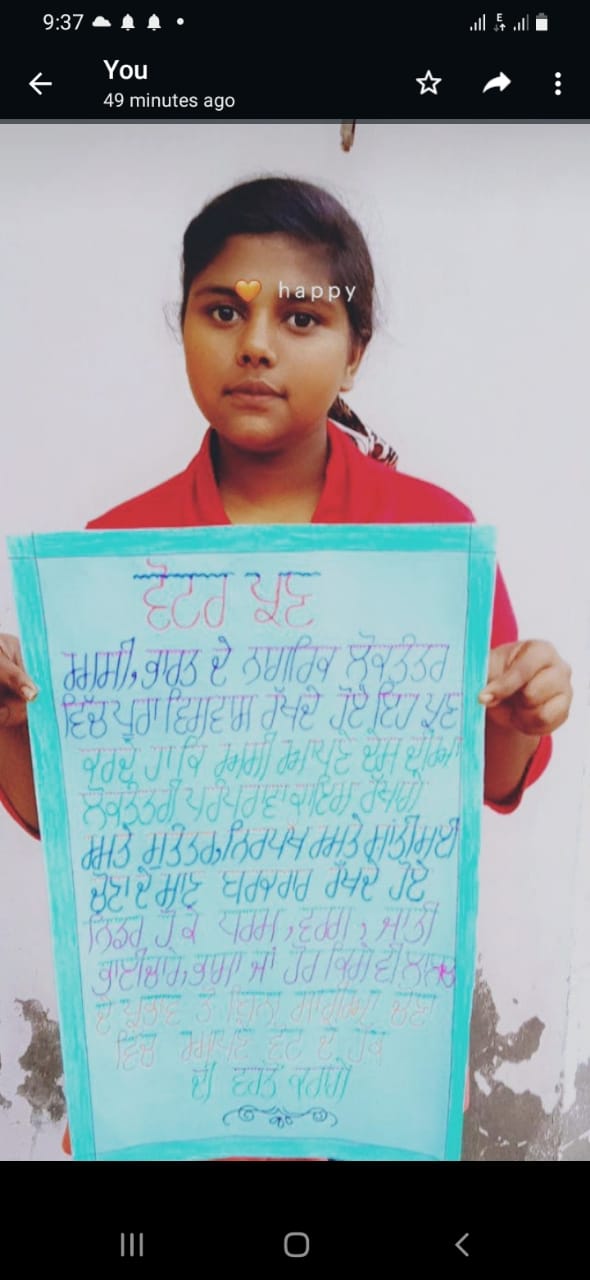 9:37
You
49 minutes ago
🧡 happy
ਵੋਟਰ ਪ੍ਰਣ
ਅਸੀ, ਭਾਰਤ ਦੇ ਨਾਗਰਿਕ ਲੋਕਤੰਤਰ
ਵਿੱਚ ਪੂਰਾ ਵਿਸ਼ਵਾਸ ਰੱਖਦੇ ਹੋਏ ਇਹ ਪ੍ਰਣ
ਕਰਦੇ ਹਾਂ ਕਿ ਅਸੀਂ ਆਪਣੇ ਦੇਸ਼ ਦੀਆਂ
ਲੋਕਤੰਤਰੀ ਪਰੰਪਰਾਵਾਂ ਕਾਇਮ ਰੱਖਾਂਗੇ
ਅਤੇ ਸੁਤੰਤਰ, ਨਿਰਪੱਖ ਅਤੇ ਸ਼ਾਂਤੀਮਈ
ਚੋਣਾਂ ਦੇ ਮਾਣ ਬਰਕਰਾਰ ਰੱਖਦੇ ਹੋਏ
ਨਿਡਰ ਹੋ ਕੇ ਧਰਮ, ਵਰਗ, ਜਾਤੀ
ਭਾਈਚਾਰੇ, ਭਾਸ਼ਾ ਜਾਂ ਹੋਰ ਕਿਸੇ ਵੀ ਲਾਲਚ
ਦੇ ਪ੍ਰਭਾਵ ਤੋਂ ਬਿਨਾਂ ਸਾਰੀਆਂ ਚੋਣਾਂ
ਵਿੱਚ ਆਪਣੇ ਵੋਟ ਦੇ ਹੱਕ
ਦੀ ਵਰਤੋਂ ਕਰਾਂਗੇ